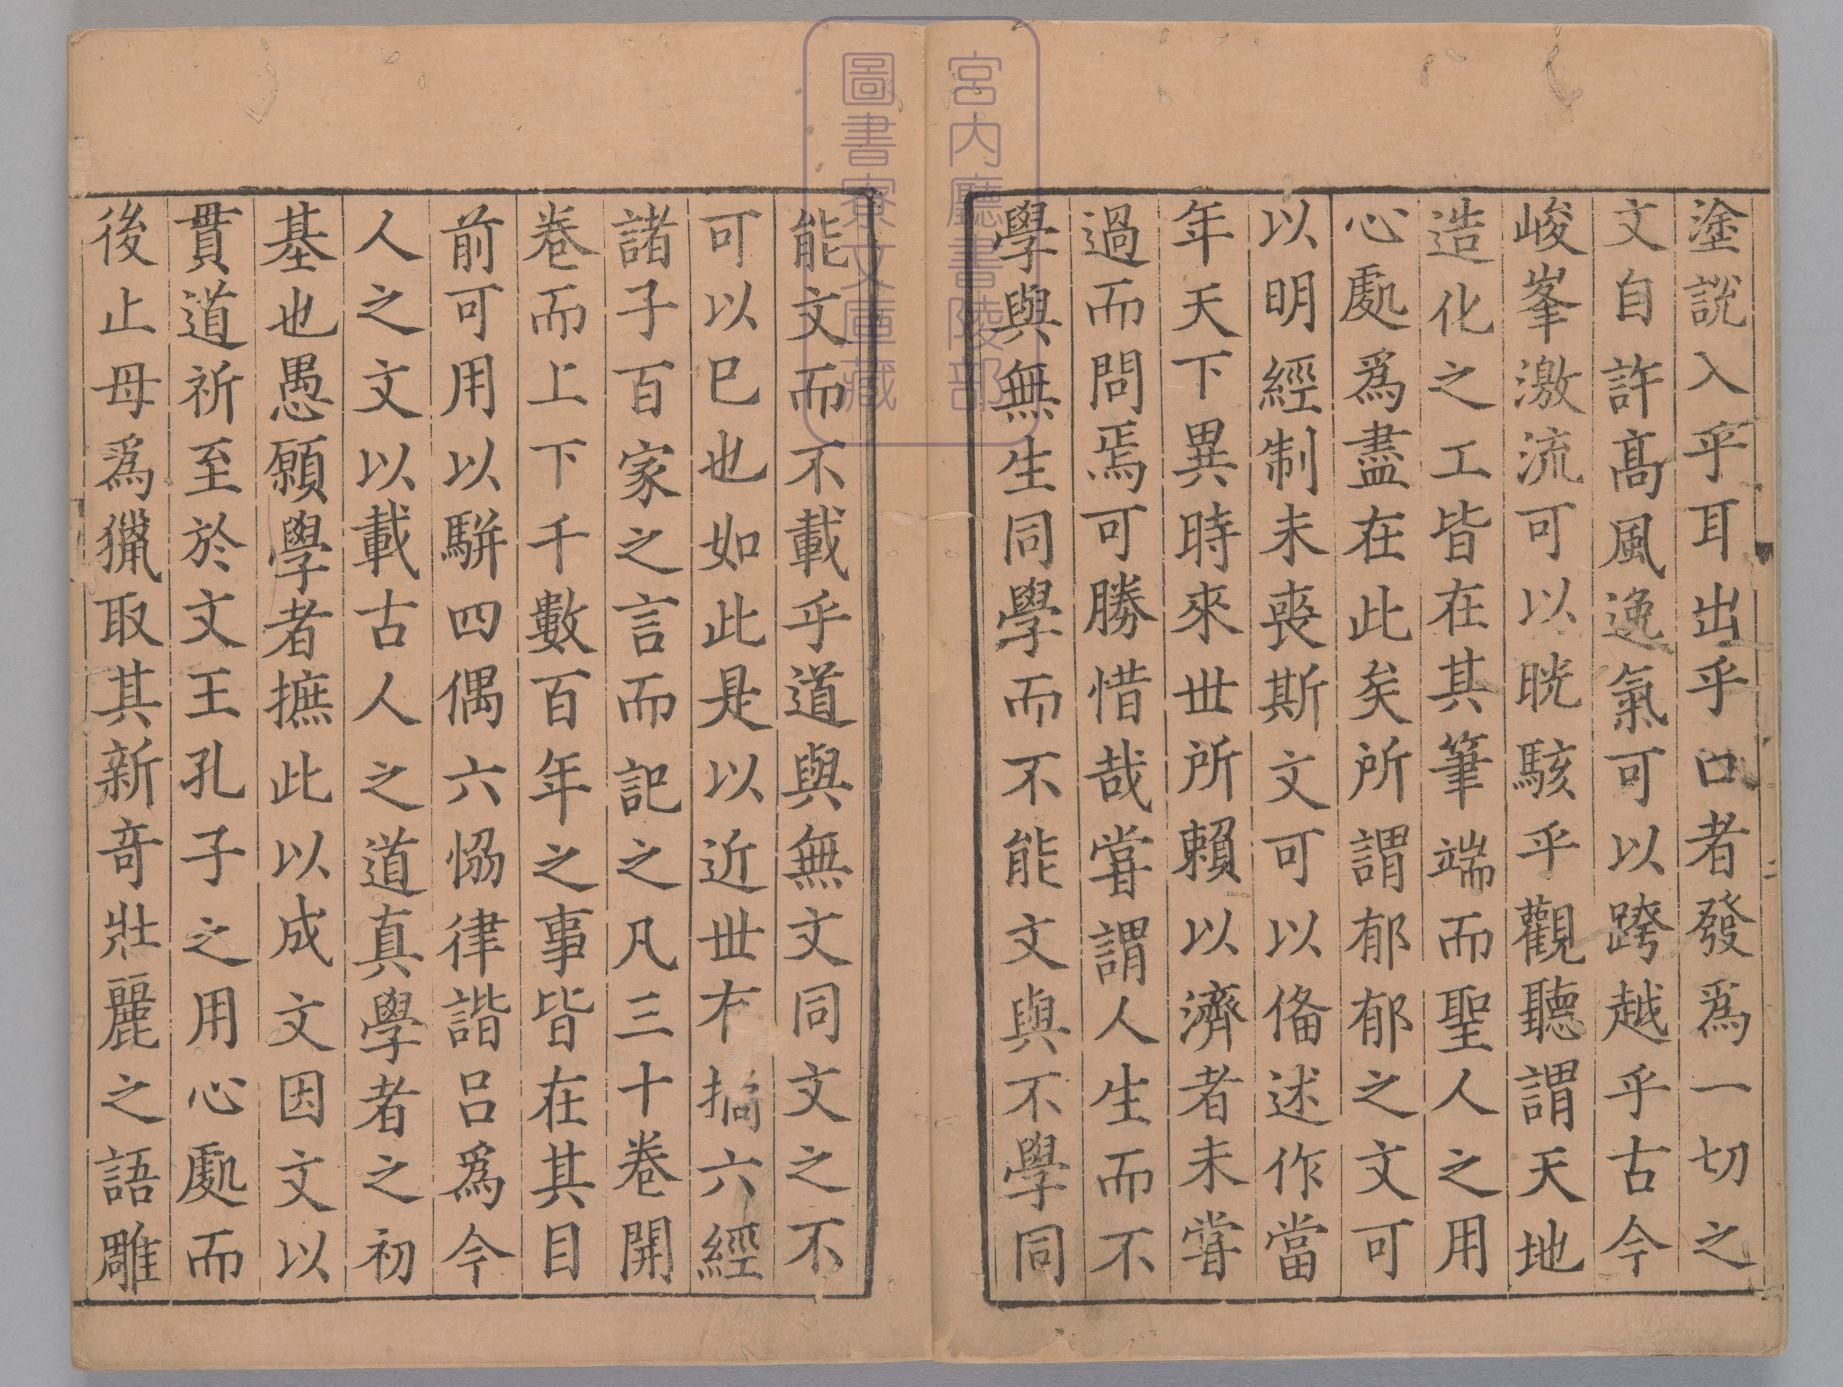 塗說入乎耳出乎口者發爲一切之
文自許髙風逸氣可以跨越乎古今
峻峯激流可以晄駭乎觀聽謂天地
造化之工皆在其筆端而聖人之用
心處爲盡在此矣所謂郁郁之文可
以明經制未喪斯文可以俻述作當
年天下異時來世所賴以濟者未甞
過而問焉可勝惜哉甞謂人生而不
學與無生同學而不能文與不學同
能文而不載乎道與無文同文之不
可以已也如此是以近世有摘六經
諸子百家之言而記之凡三十卷開
卷而上下千數百年之事皆在其目
前可用以駢四偶六恊律諧呂爲今
人之文以載古人之道真學者之初
基也愚願學者摭此以成文因文以
貫道祈至於文王孔子之用心處而
後止毋爲獵取其新竒壯麗之語雕
宮内廳書陵部
圖書寮文庫藏